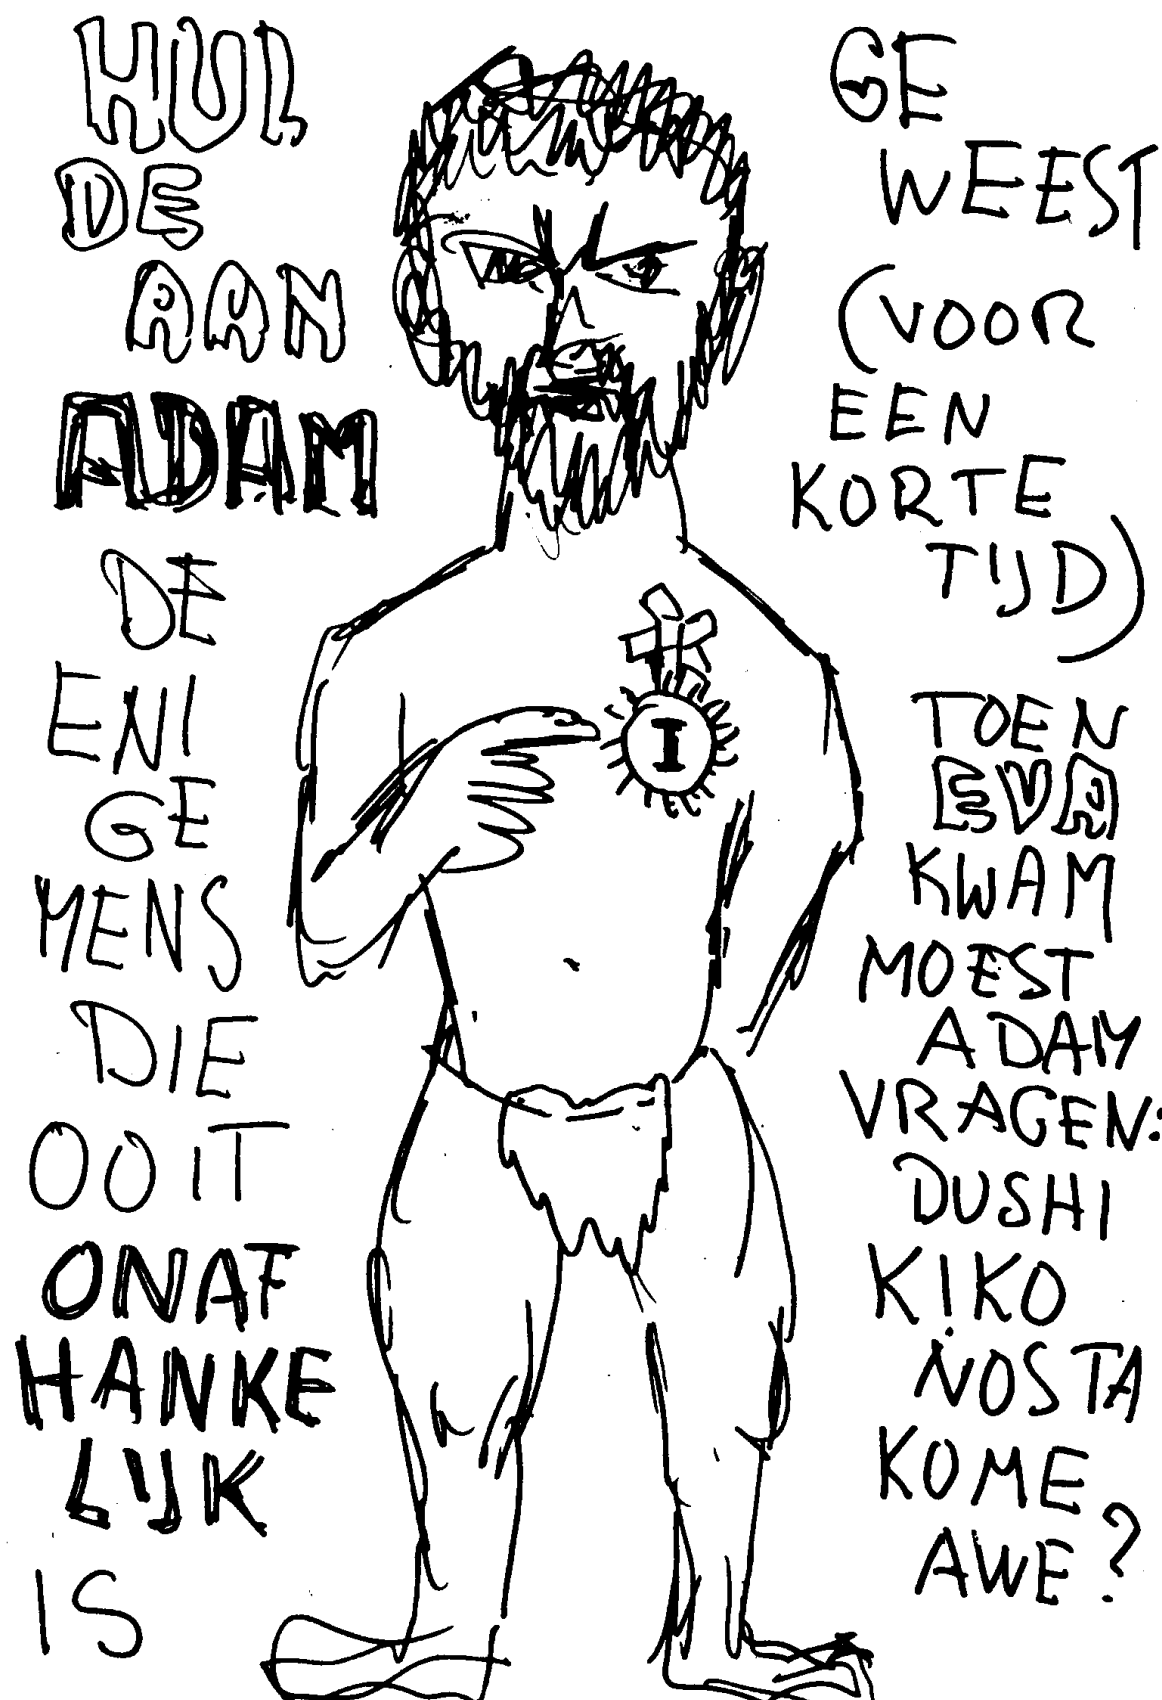 HUL
DE
AAN
ADAM
DE
ENI
GE
MENS
DIE
OOIT
ONAF
HANKE
LIJK
IS
GE
WEEST
(VOOR
EEN
KORTE
TIJD)
TOEN
EVA
KWAM
MOEST
ADAM
VRAGEN:
DUSHI
KIKO
NOS TA
KOME
AWE?
I